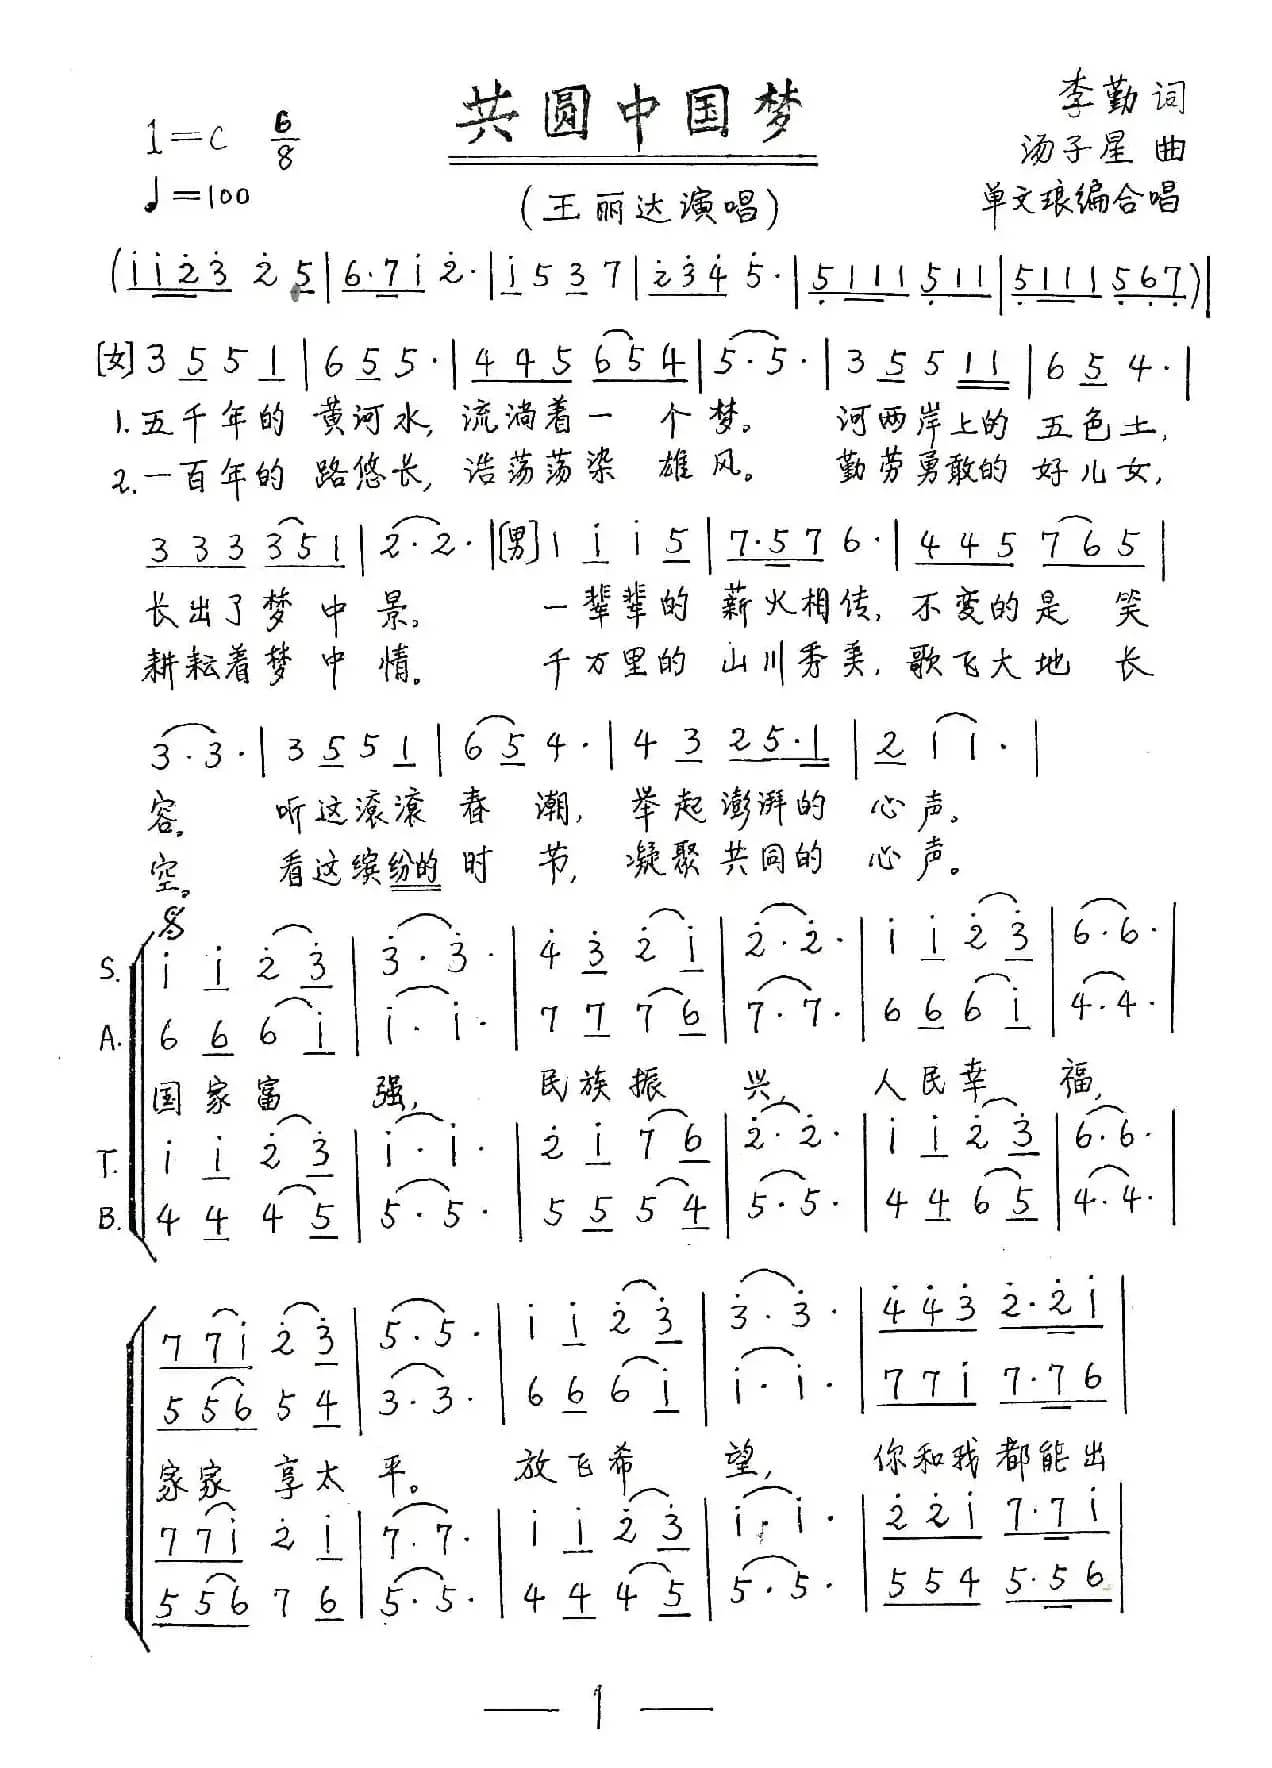 共圆中国梦
1=C 6/8
♩=100
李勤 词
汤子星 曲
单文琅编合唱
(王丽达演唱)
(i i 2 3 2 5 | 6· 7 i 2· | i 5 3 7 | 2 3 4 5· | 5 1 1 1 5 1 1 | 5 1 1 1 5 6 7) |
[女] 3 5 5 1 | 6 5 5· | 4 4 5 6 5 4 | 5· 5· | 3 5 5 1 1 | 6 5 4· |
1.五千年的 黄河水, 流淌着一 个 梦。 河两岸上的 五色土,
2.一百年的 路悠长, 浩荡荡染 雄 风。 勤劳勇敢的 好儿女,
3 3 3 3 5 1 | 2· 2· | [男] 1 i i 5 | 7· 5 7 6· | 4 4 5 7 6 5 |
长出了梦 中 景。 一辈辈的 薪火相传, 不变的是 笑
耕耘着梦 中 情。 千万里的 山川秀美, 歌飞大地 长
3· 3· | 3 5 5 1 | 6 5 4· | 4 3 2 5· 1 | 2 1 1· |
容。 听这滚滚 春 潮, 举起澎湃的 心声。
空。 看这缤纷的 时 节, 凝聚共同的 心声。
S. i i 2 3 | 3· 3· | 4 3 2 i | 2· 2· | i i 2 3 | 6· 6· |
A. 6 6 6 i | i· i· | 7 7 7 6 | 7· 7· | 6 6 6 i | 4· 4· |
国家富 强, 民族振 兴, 人民幸 福,
T. i i 2 3 | i· i· | 2 i 7 6 | 2· 2· | i i 2 3 | 6· 6· |
B. 4 4 4 5 | 5· 5· | 5 5 5 4 | 5· 5· | 4 4 6 5 | 4· 4· |
7 7 i 2 3 | 5· 5· | i i 2 3 | 3· 3· | 4 4 3 2· 2 i |
5 5 6 5 4 | 3· 3· | 6 6 6 i | i· i· | 7 7 i 7· 7 6 |
家家 享太 平。 放飞希 望, 你和我都能出
7 7 i 2 i | 7· 7· | i i 2 3 | i· i· | 2 2 i 7· 7 i |
5 5 6 7 6 | 5· 5· | 4 4 4 5 | 5· 5· | 5 5 4 5· 5 6 |
— 1 —